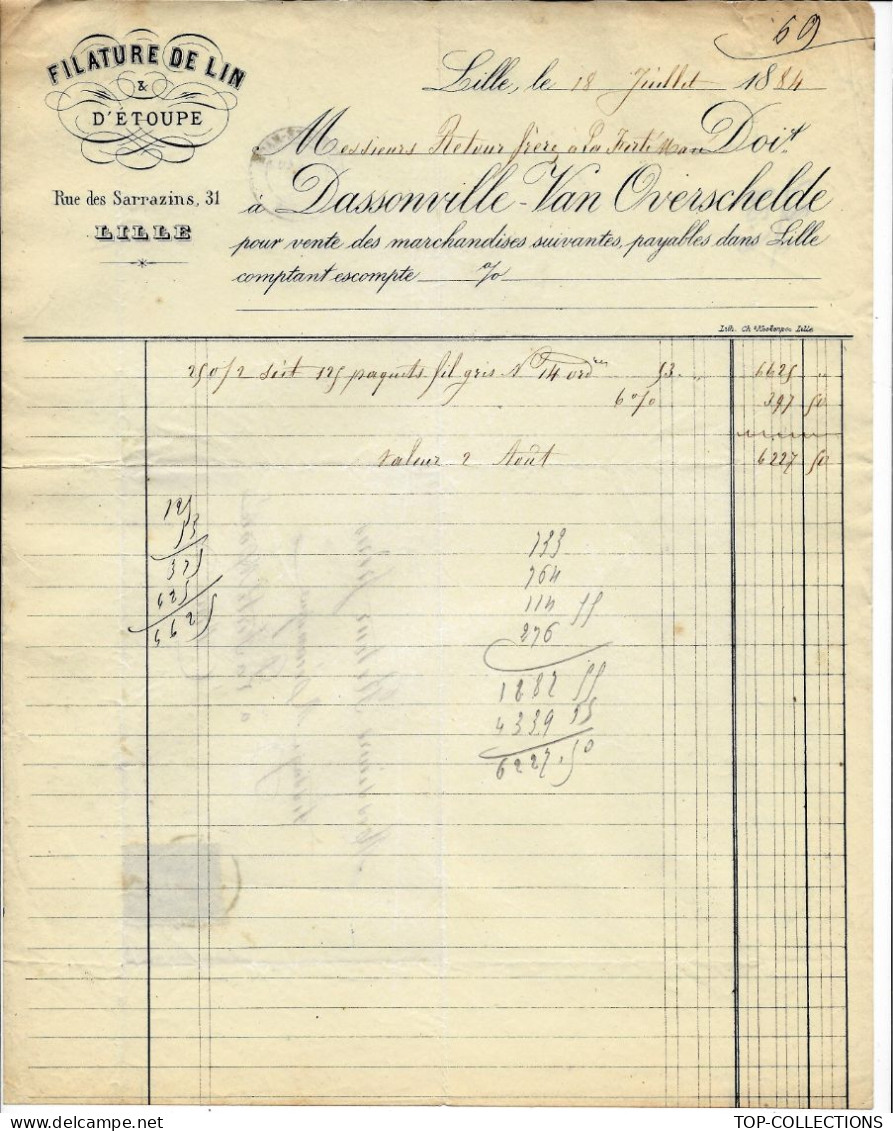 69
FILATURE DE LIN
&
D'ÉTOUPE
Rue des Sarrazins, 31
LILLE
Lille, le 18 Juillet 1884
Messieurs Retour frères à La Ferté Macé Doivt
à Dassonville-Van Overschelde
pour vente des marchandises suivantes, payables dans Lille
comptant escompte % 
Lith. Lille
250/2 soit 125 paquets fil gris N° 14 ordres 53 " 6625 "
6 % 397 50
Valeur 2 Août 6227 50
125
53
375
625
733
764
114 55
276
1887 55
4339 95
6227.50
TOP-COLLECTIONS